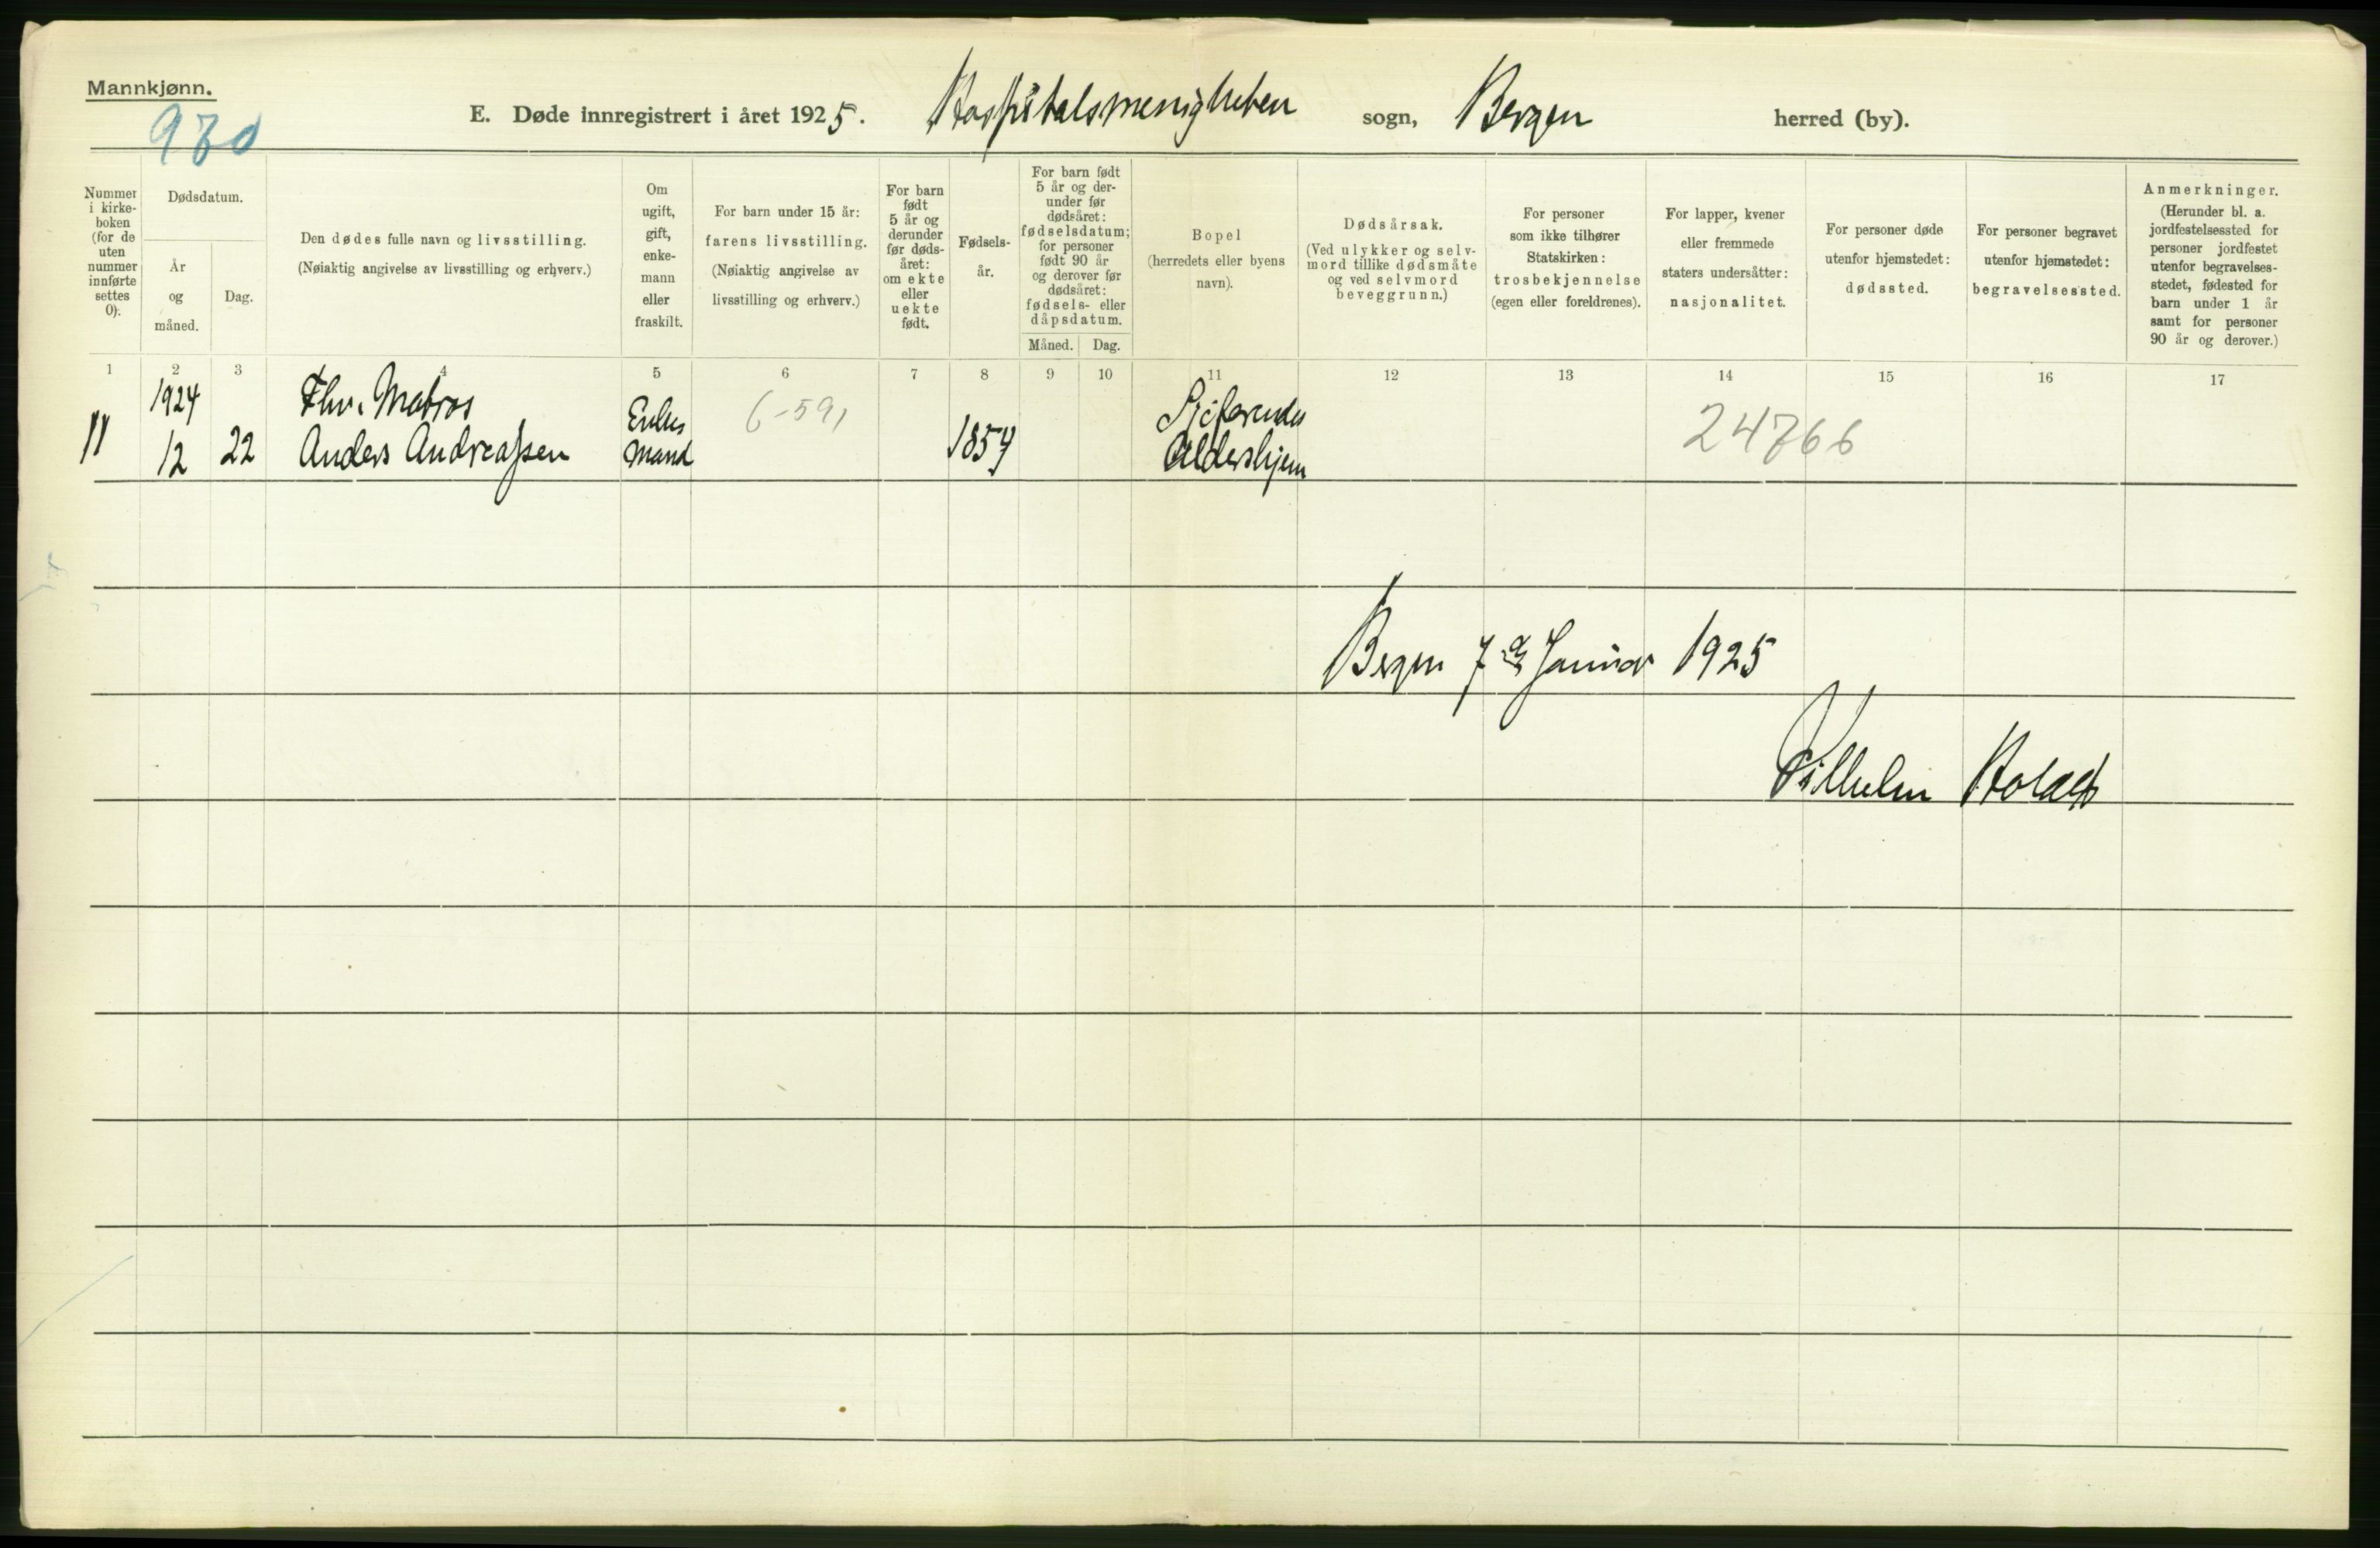 Mannkjønn.
970
E. Døde innregistrert i året 1925. Hospitalsmenigheten sogn, Bergen herred (by).
Nummer i kirke-boken (for de uten nummer innførte settes 0).
Dødsdatum.
År og måned.
Dag.
Den dødes fulle navn og livsstilling.
(Nøiaktig angivelse av livsstilling og erhverv.)
Om ugift, gift, enke-mann eller fraskilt.
For barn under 15 år: farens livsstilling.
(Nøiaktig angivelse av livsstilling og erhverv.)
For barn født 5 år og derunder før døds-året: om ekte eller uekte født.
Fødsels-år.
For barn født 5 år og der-under før dødsåret: fødselsdatum; for personer født 90 år og derover før dødsåret: fødsels- eller dåpsdatum.
Måned. Dag.
Bopel
(herredets eller byens navn).
Dødsårsak.
(Ved ulykker og selv-mord tillike dødsmåte og ved selvmord beveggrunn.)
For personer som ikke tilhører Statskirken: trosbekjennelse (egen eller foreldrenes).
For lapper, kvener eller fremmede staters undersåtter: nasjonalitet.
For personer døde utenfor hjemstedet: dødssted.
For personer begravet utenfor hjemstedet: begravelsessted.
Anmerkninger.
(Herunder bl. a. jordfestelsessted for personer jordfestet utenfor begravelses-stedet, fødested for barn under 1 år samt for personer 90 år og derover.)
1 2 3 4 5 6 7 8 9 10 11 12 13 14 15 16 17
1924 Fhv. Matros Enkes 6-591 Sjøfarendes 24766
11 12 22 Anders Andreassen mand 1854 Aldershjem
Bergen 7de Januar 1925
Vilhelm